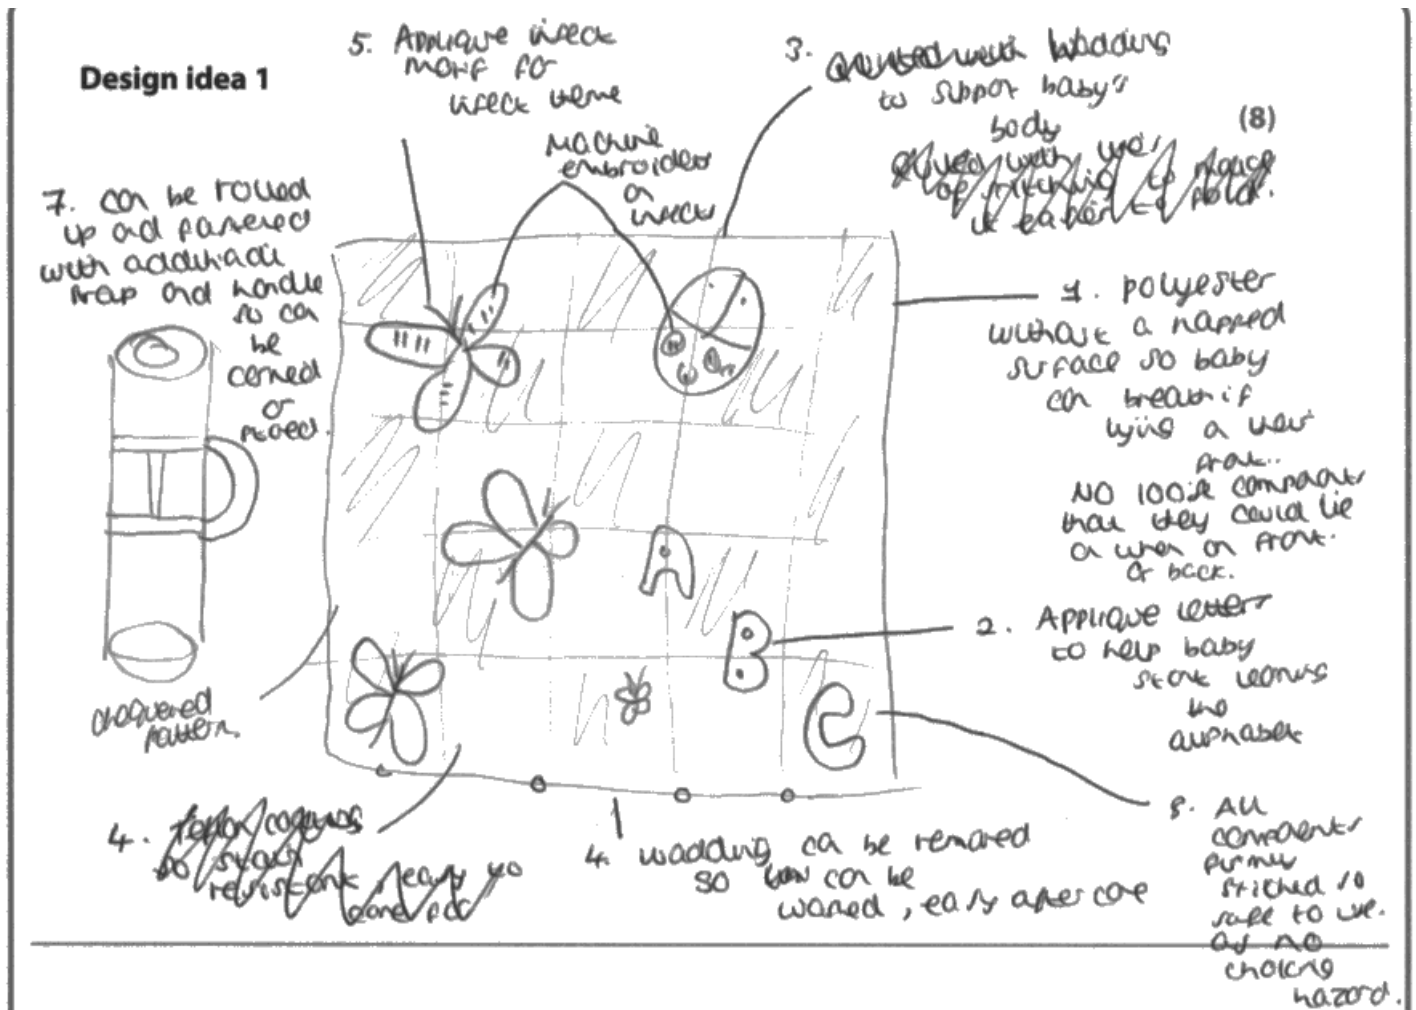 Design idea 1
(8)
5. Applique insect
motif for
insect theme
Machine
embroidery
on
insects
3.
Wadding
to support baby's
body
7. can be rolled
up and fastened
with additional
strap and handle
so can
be
carried
or
stored.
1. polyester
without a napped
surface so baby
can breath if
lying on their
front..
No loose components
that they could lie
on when on front.
or back.
2. Applique letters
to help baby
start learning
the
alphabet
chequered
pattern.
4.
resistant, easy to
4. wadding can be removed
so can be
washed, easy aftercare
8. All
components
firmly
stitched so
safe to use.
as no
choking
hazard.